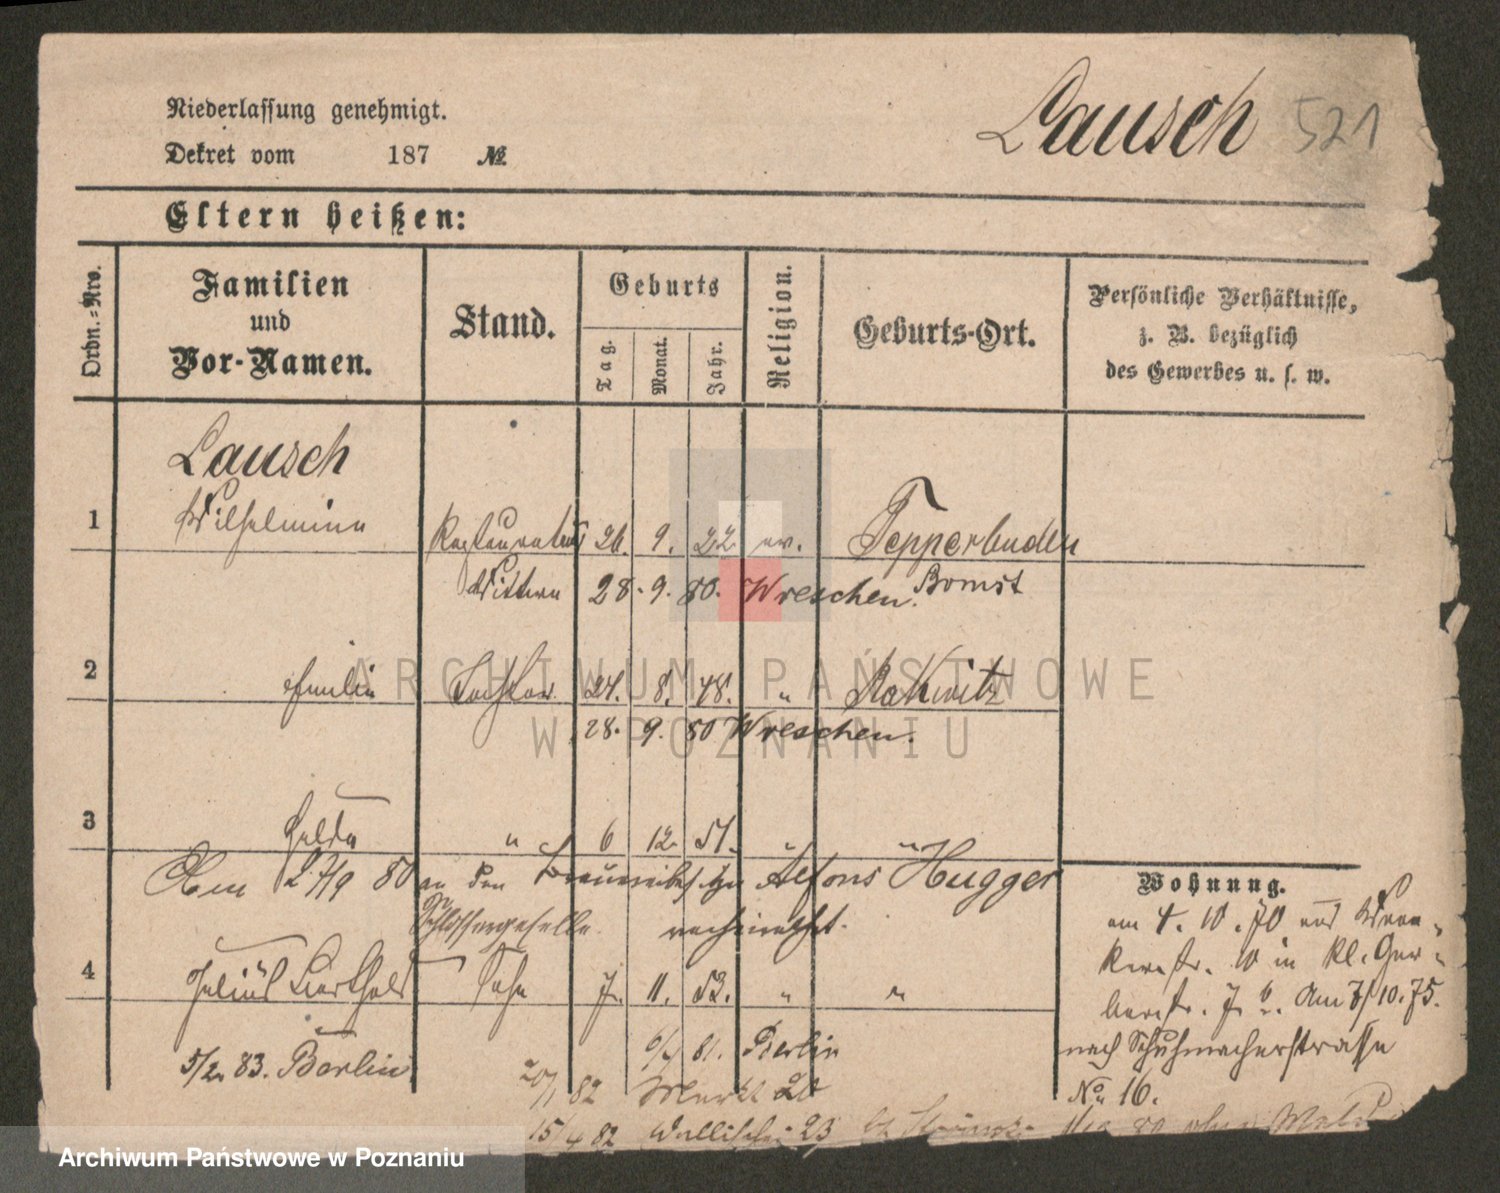 Niederlassung genehmigt.
Dekret vom 187 №
Lausch 521
Eltern heißen:
Ordn.-Nro.
Familien und Vor-Namen.
Stand.
Geburts
Tag.
Monat.
Jahr.
Religion.
Geburts-Ort.
Persönliche Verhältnisse,
z. B. bezüglich
des Gewerbes u. s. w.
Lausch
1 Wilhelmine Restaurateurs 26. 9. 22 ev. Tepperbuden
Wittwe 28. 9. 80. Wreschen. Bomst
2 Emilie Tochter 24. 8. 48. " Rakwitz
28. 9. 80 Wreschen.
3 Hulda " 6 12. 51. " "
Am 27/9 80 an den Brauereibesitzer Alfons Hugger
Schlossergeselle. verheirathet.
4 Julius Berthold Sohn 7. 11. 53. " "
5/2. 83. Berlin 81. Berlin
20/1 82 Markt
15/4 82 Wallischei 23
Wohnung.
am 4. 10. 70 aus Wron-
kerstr. 10 in kl. Ger-
berstr. 7 b. Am 7/10. 75.
nach Schuhmacherstrasse
No 16.
ARCHIWUM PAŃSTWOWE
W POZNANIU
Archiwum Państwowe w Poznaniu